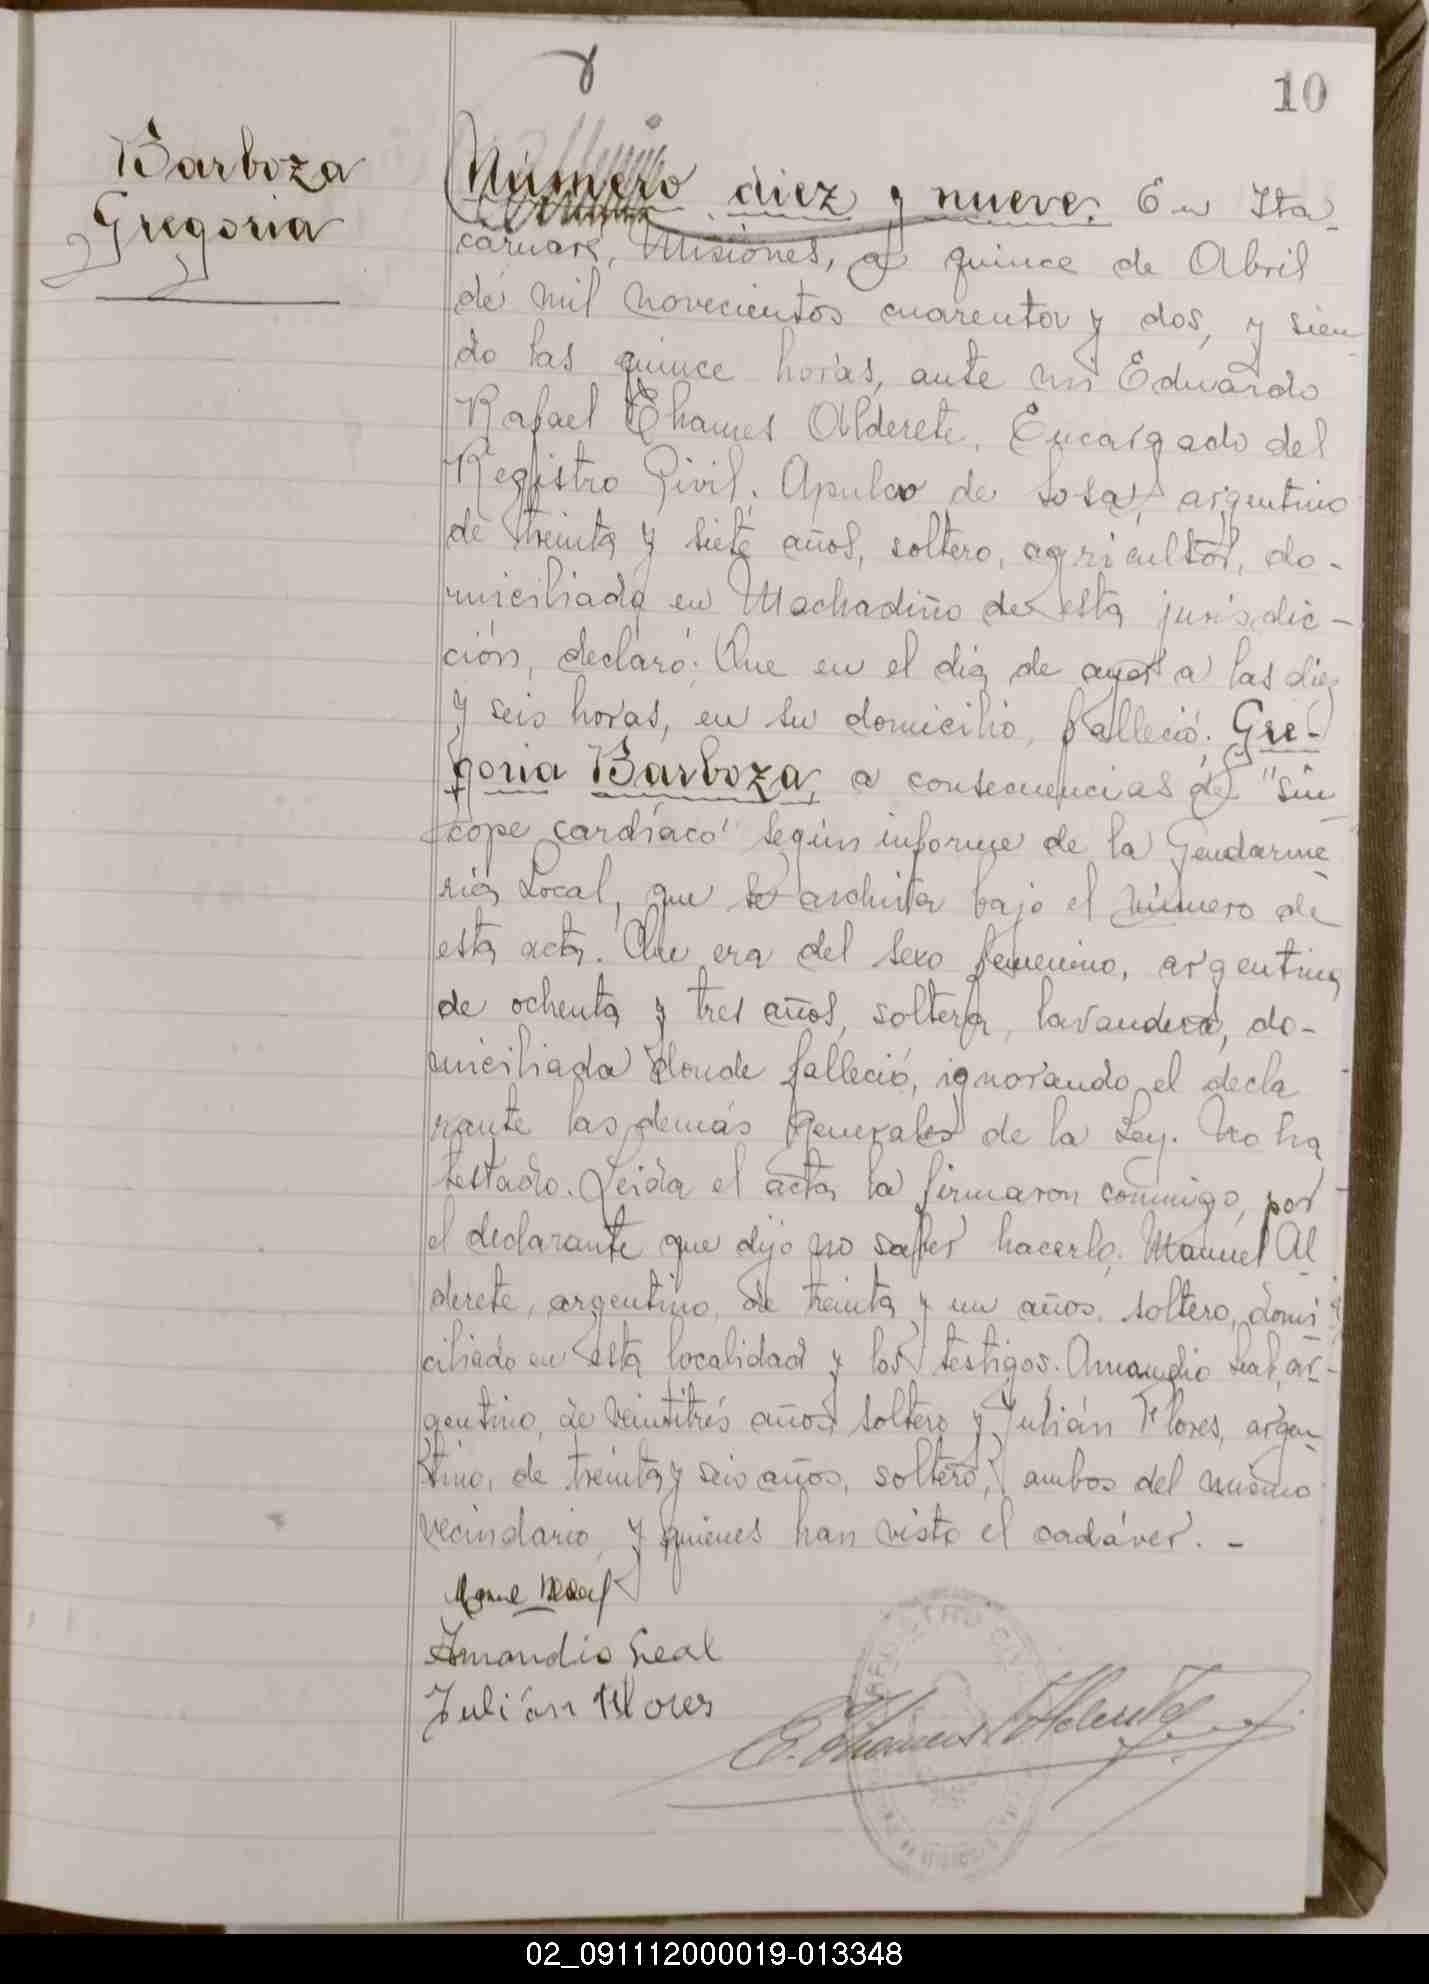 10
Barboza
Gregoria
Número diez y nueve. En Ita
caruaré, Misiones, a quince de Abril
de mil novecientos cuarenta y dos, y sien
do las quince horas, ante mi Eduardo
Rafael Thames Alderete, Encargado del
Registro Civil, Apuleo de Sosa, argentino
de treinta y siete años, soltero, agricultor, do-
miciliado en Machadiño de esta jurisdic-
ción, declaró: Que en el día de ayer a las diez
y seis horas, en su domicilio, falleció: Gre-
goria Barboza, a consecuencias de "sín
cope cardíaco" según informe de la Gendarme
ría Local, que se archiva bajo el número de
esta acta. Que era del sexo femenino, argentina
de ochenta y tres años, soltera, lavandera, do-
miciliada donde falleció, ignorando el decla
rante las demás generales de la Ley. No ha
testado. Leida el acta la firmaron conmigo, por
el declarante que dijo no saber hacerlo, Manuel Al
derete, argentino, de treinta y un años, soltero, domi
ciliado en esta localidad y los testigos. Amandio Leal, ar-
gentino, de veintitrés años soltero y Julián Flores, argen
tino, de treinta y seis años, soltero, ambos del mismo
vecindario, y quienes han visto el cadáver. -
Amandio Leal
Julián Flores
E. Thames Alderete
REGISTRO CIVIL
02_091112000019-013348